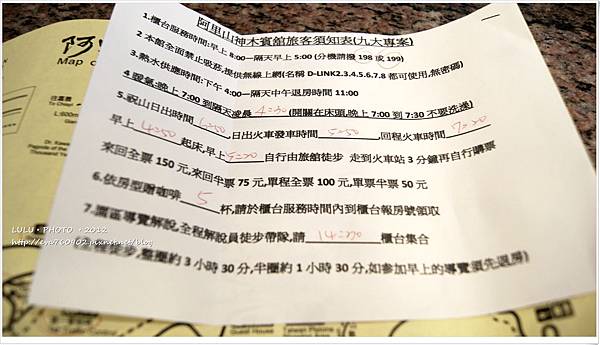 阿里山神木賓館旅客須知表(九大專案)
1.櫃台服務時間:早上 8:00─隔天早上 5:00 (分機請撥 198 或 199)
2 本館全面禁止吸菸,提供無線上網(名稱 D-LINK2.3.4.5.6.7.8 都可使用,無密碼)
3.熱水供應時間:下午 4:00─隔天中午退房時間 11:00
4 暖氣:晚上 7:00 到隔天凌晨 4:30 (開關在床頭,晚上 7:00 到 7:30 不要洗澡)
5.祝山日出時間 日出火車發車時間 回程火車時間
早上 4:50 起床,早上 自行由旅館徒步 走到火車站 3 分鐘再自行購票
來回全票 150 元,來回半票 75 元,單程全票 100 元,單票半票 50 元
6.依房型贈咖啡 5 杯,請於櫃台服務時間內到櫃台報房號領取
7.園區導覽解說,全程解說員徒步帶隊,請 櫃台集合
徒步,整圈約 3 小時 30 分,半圈約 1 小時 30 分,如參加早上的導覽須先退房)
阿
Map o
LULU‧PHOTO‧2012
http://eya760902.pixnet.net/blog